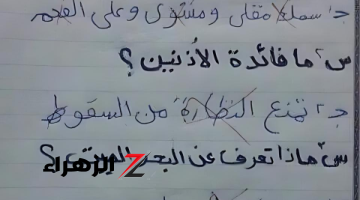 ج: سمك مقلي ومشوي وعلى الفحم
س: ما فائدة الأذنين؟
ج: تمنع النظارة من السقوط
س: ماذا تعرف عن البحر الميت؟
الزهراء